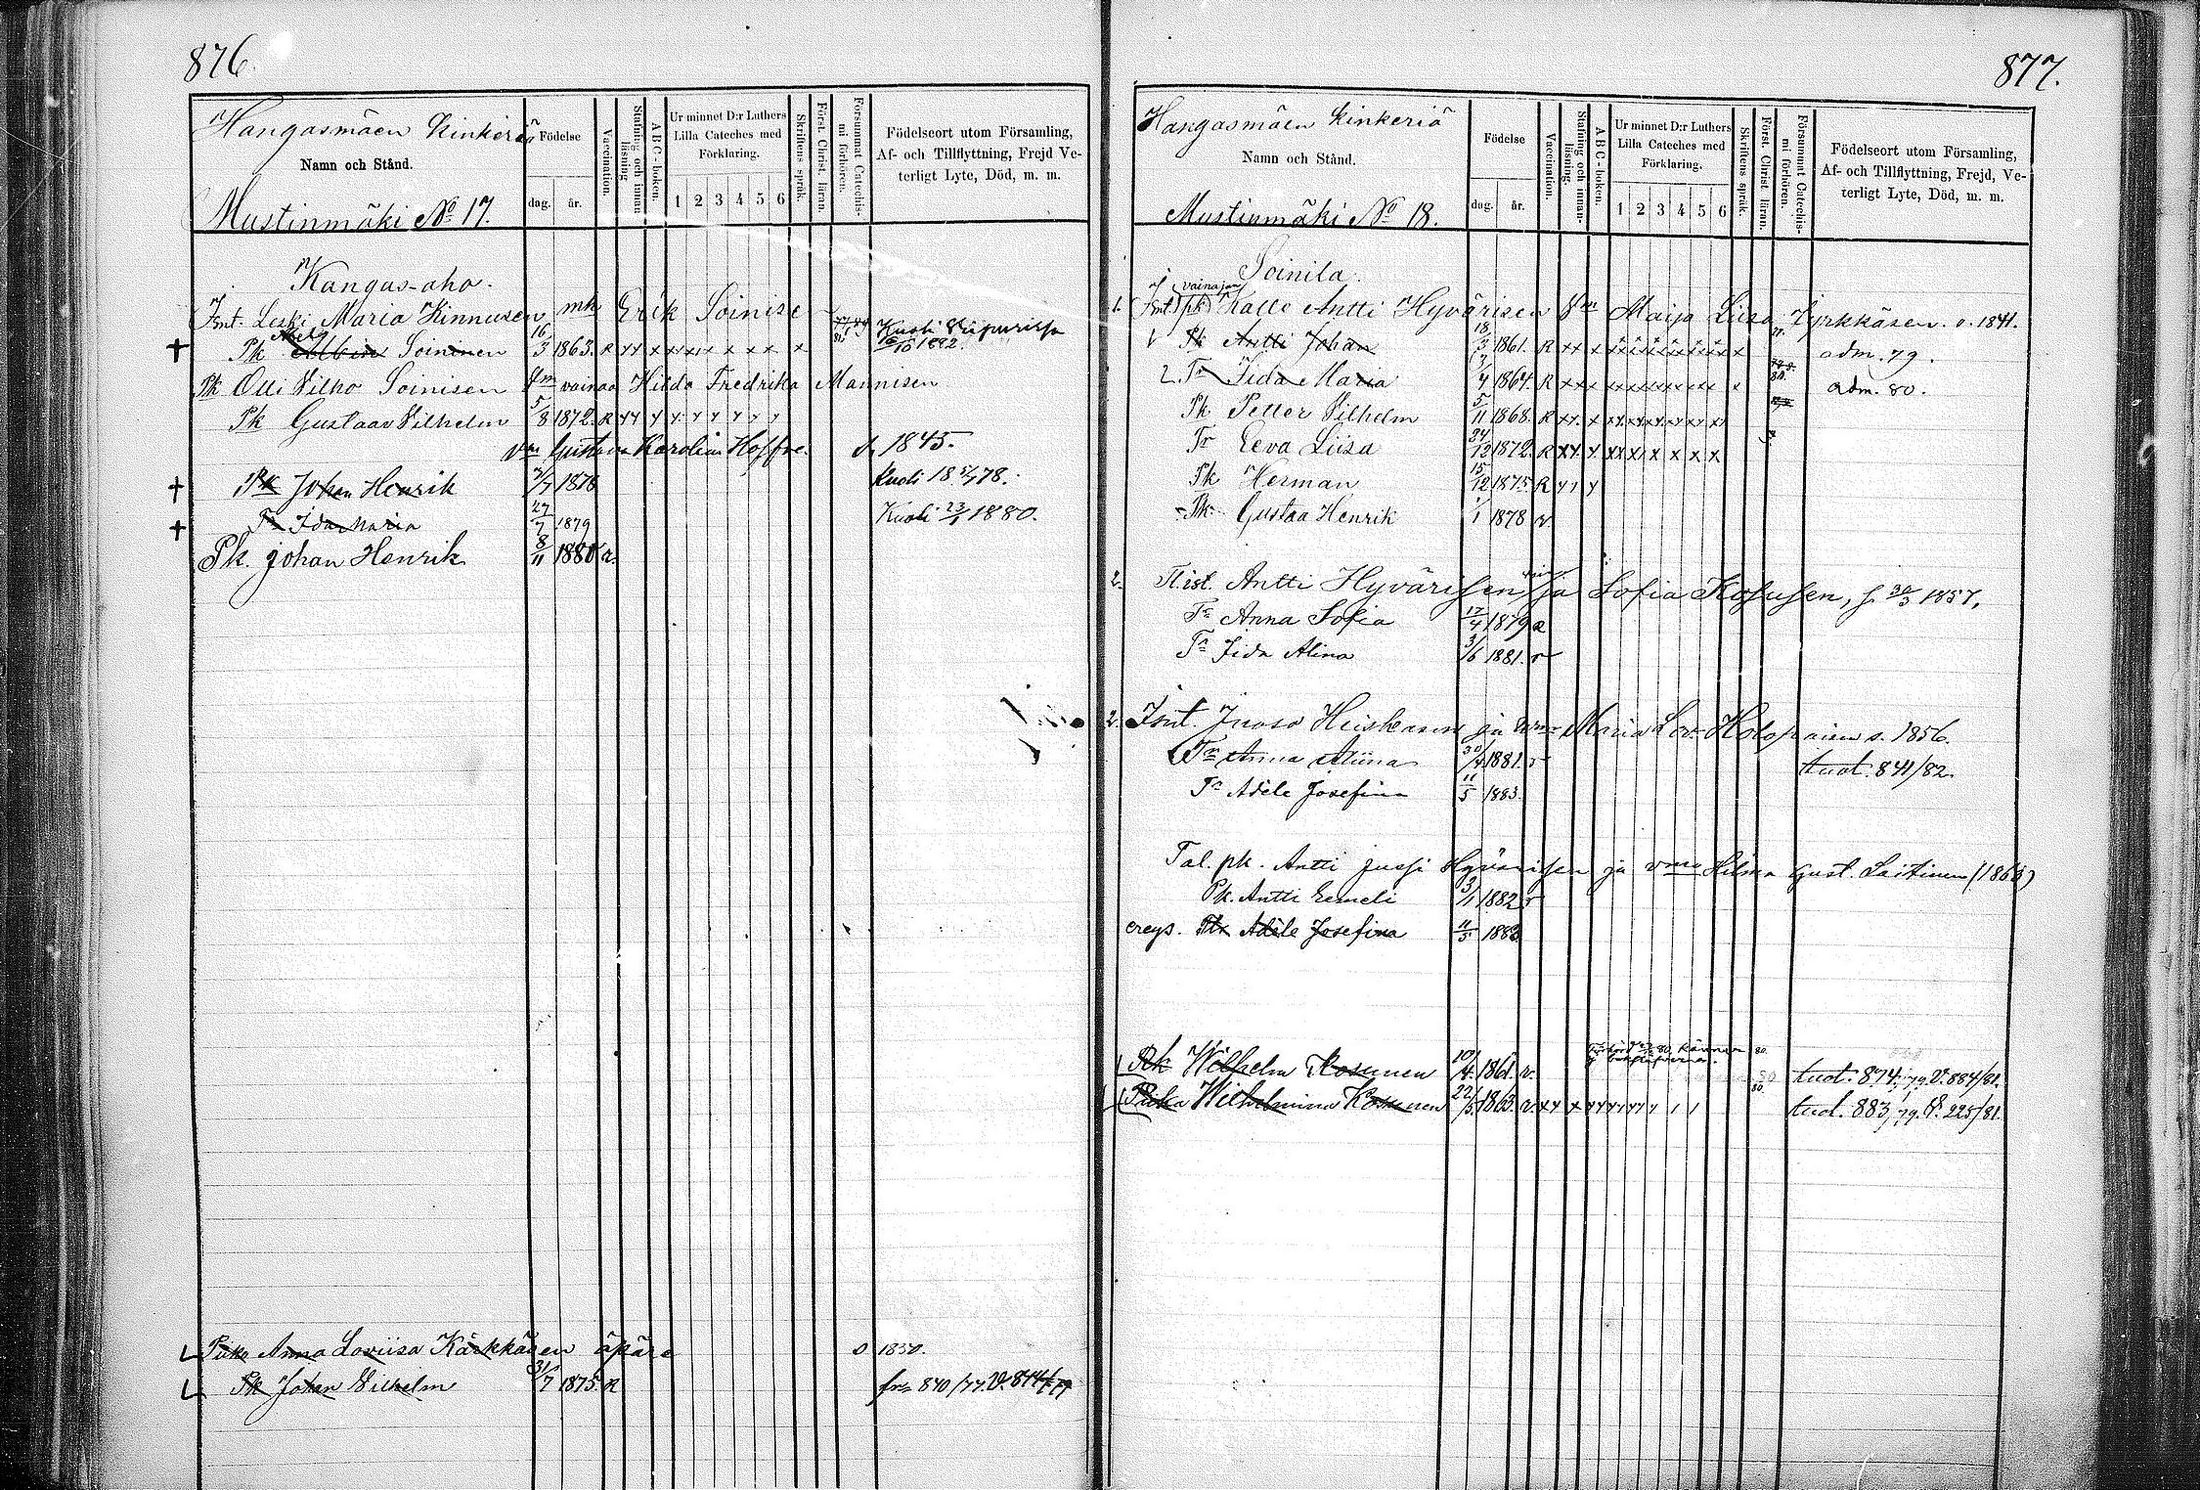 876.
Hangasmäen Kinkeriä
Namn och Stånd.
Mustinmäki No 17.
Födelse
dag. år.
Vaccination.
Stafning och innan läsning
ABC-boken.
Ur minnet D:r Luthers Lilla Cateches med Förklaring.
1 2 3 4 5 6
Skriftens språk.
Först. Christ. läran.
Försummat Catechismi förhören.
Födelseort utom Församling, Af- och Tillflyttning, Frejd Veterligt Lyte, Död, m. m.
Kangas-aho.
Ismt. Leski Maria Kinnusen mh Erik Soinise
Pk Albin Soininen 16/3 1863. R xx x x x x x x x x Kuoli Wiipurissa /10 1882.
Pk Olli Vilho Soinisen Vm vainaa Hilda Fredrika Mannisen
Pk Gustaav Vilhelm 5/8 1872. R
Vm Gustava Karolina Hoffre. s. 1845.
Pk Johan Henrik 7/7 1878 Kuoli 18 /7 78.
Tr Ida Maria 27/7 1879 Kuoli 23/1 1880.
Pk. Johan Henrik 8/11 1880 r.
Piika Anna Loviisa Kärkkäsen äpärä s 1850.
Pk Johan Vilhelm 31/7 1875. R fr= 840/77. V. 874/79
877.
Hangasmäen Kinkeriä
Namn och Stånd.
Mustinmäki No 18.
Födelse
dag. år.
Vaccination.
Stafning och innanläsning.
ABC-boken.
Ur minnet D:r Luthers Lilla Cateches med Förklaring.
1 2 3 4 5 6
Skriftens språk.
Först. Christ. läran.
Försummat Catechismi förhören.
Födelseort utom Församling, Af- och Tillflyttning, Frejd, Veterligt Lyte, Död, m. m.
Soinila.
vainajan
1. Ismt (pk) Kalle Antti Hyvärisen Vm Maija Liisa Jyrkkäsen. s. 1841.
Pk Antti Johan 18/3 1861. R xx x adm. 79.
2. Tr Iida Maria /4 1864. R xx x adm. 80.
Pk Petter Vilhelm 5/11 1868. R xx. x
Tr Eeva Liisa 24/12 1872. R xx. x
Pk Herman 15/12 1875. R
Pk Gustaa Henrik 1/1 1878 r
2. Tl.ist. Antti Hyvärisen ja Sofia Kosusen, s. 30/3 1857.
Tr Anna Sofia 17/4 1879 R
Tr Iida Alina 3/6 1881. r
2. Ismt. Juoso Heiskasen ja vmo Maria Lov. Holopainen s. 1856.
Tr Anna Miina 30/4 1881. r tuot. 841/82.
Tr Adele Josefina 11/5 1883.
Tal. pk. Antti Jussi Hyvärisen ja vmo Hilma Gust. Laitinen (1863)
Pk. Antti Eemeli 3/1 1882 r
ereys. Ttr Adèle Josefina 11/5 1883
Pk Wilhelm Kosunen 10/4. 1861. r. 80. tuot. 874/79. V. 884/81.
Piika Wilhelmina Kosunen 22/5 1863. r. xx x 80. tuot. 883/79. V. 225/81.